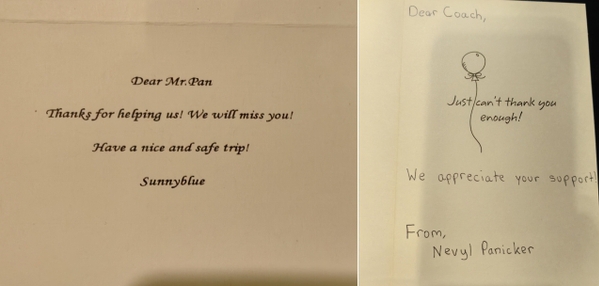 Dear Mr.Pan
Thanks for helping us! We will miss you!
Have a nice and safe trip!
Sunnyblue
Dear Coach,
Just can't thank you
enough!
We appreciate your support!
From,
Nevyl Panicker